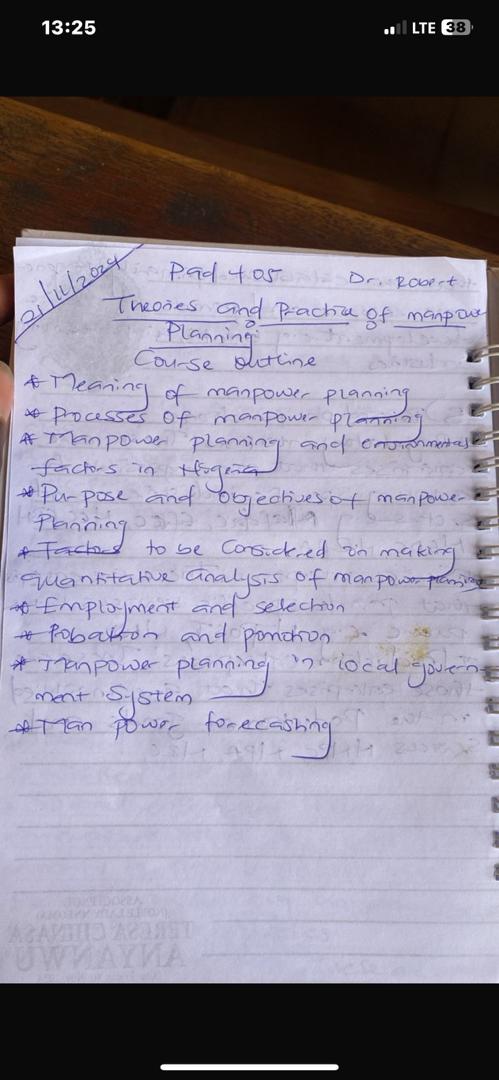 13:25
LTE 38
21/11/2024
Pad 405 Dr. Robert
Theories and Practice of manpower
Planning
Course outline
* Meaning of manpower planning
* Processes of manpower planning
* Manpower planning and environmental
factors in Nigeria
* Purpose and Objectives of manpower
Planning
* Factors to be Considered in making
quantitative analysis of manpower planning
* Employment and selection
* Probation and
* Manpower planning in local govern
ment System
* Man power forecashing
TERESA CHINASA
ANYANWU